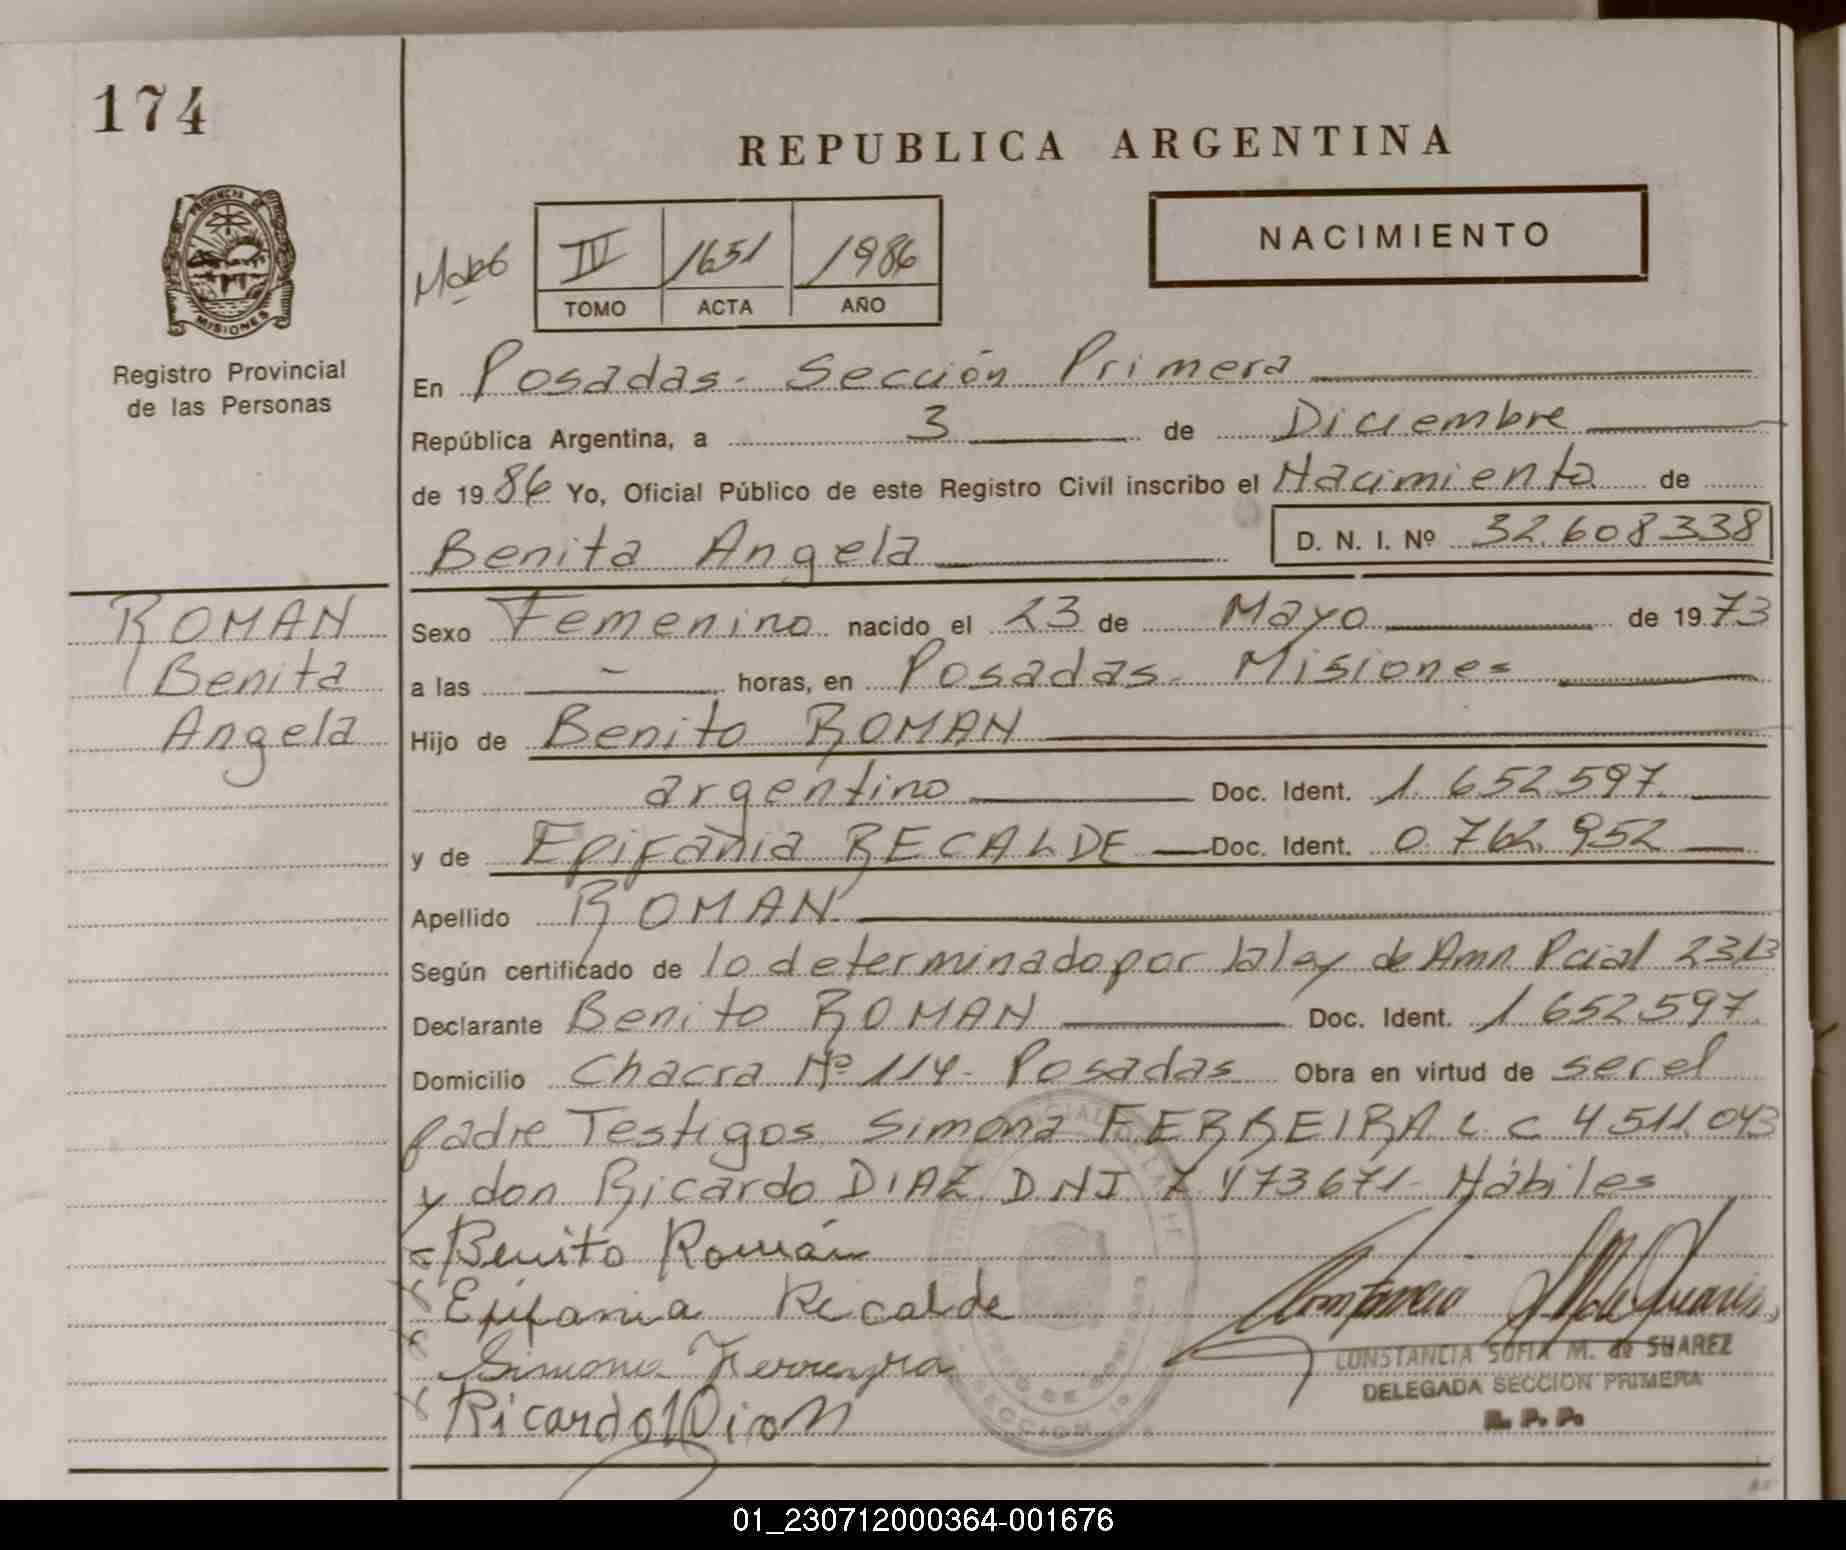 174
REPUBLICA ARGENTINA
PROVINCIA DE
MISIONES
Registro Provincial
de las Personas
IV 1651 1986
TOMO ACTA AÑO
NACIMIENTO
En Posadas - Sección Primera
República Argentina, a 3 de Diciembre
de 1986 Yo, Oficial Público de este Registro Civil inscribo el Nacimiento de
Benita Angela D. N. I. Nº 32.608.338
ROMAN
Benita
Angela
Sexo Femenino nacido el 23 de Mayo de 1973
a las - horas, en Posadas - Misiones
Hijo de Benito ROMAN
argentino Doc. Ident. 1.652.597.
y de Epifania RECALDE Doc. Ident. 0.762.952
Apellido ROMAN
Según certificado de lo determinado por la ley de Amn Pcial 2313
Declarante Benito ROMAN Doc. Ident. 1.652.597.
Domicilio Chacra Nº 114 - Posadas Obra en virtud de ser el
padre Testigos Simona FERREIRA L C 4.511.043
y don Ricardo DIAZ DNI 7.473.671 - Hábiles
Benito Román
Epifania Recalde
Simona Ferreyra
Ricardo
CONSTANCIA SOFIA M. de SUAREZ
DELEGADA SECCION PRIMERA
R. P. P.
01_230712000364-001676